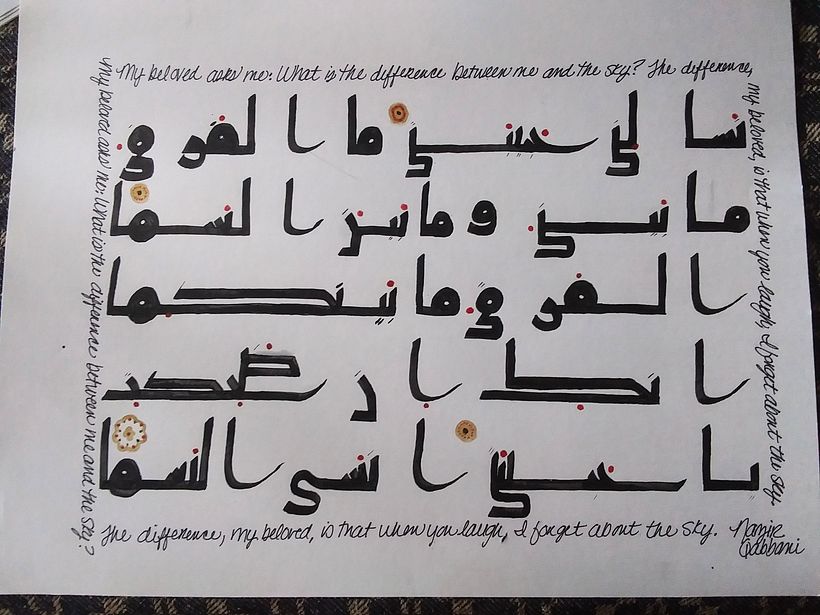 My beloved asks me: What is the difference between me and the sky? The difference,
my beloved, is that when you laugh, I forget about the sky.
تسالني حبيبتي ما الفرق
ما بيني و ما بين السما
الفرق ما بينكما
انك ان ضحكت
يا حبيبتي انسى السما
My beloved asks me: What is the difference between me and the sky?
The difference, my beloved, is that when you laugh, I forget about the sky.
Qabbani